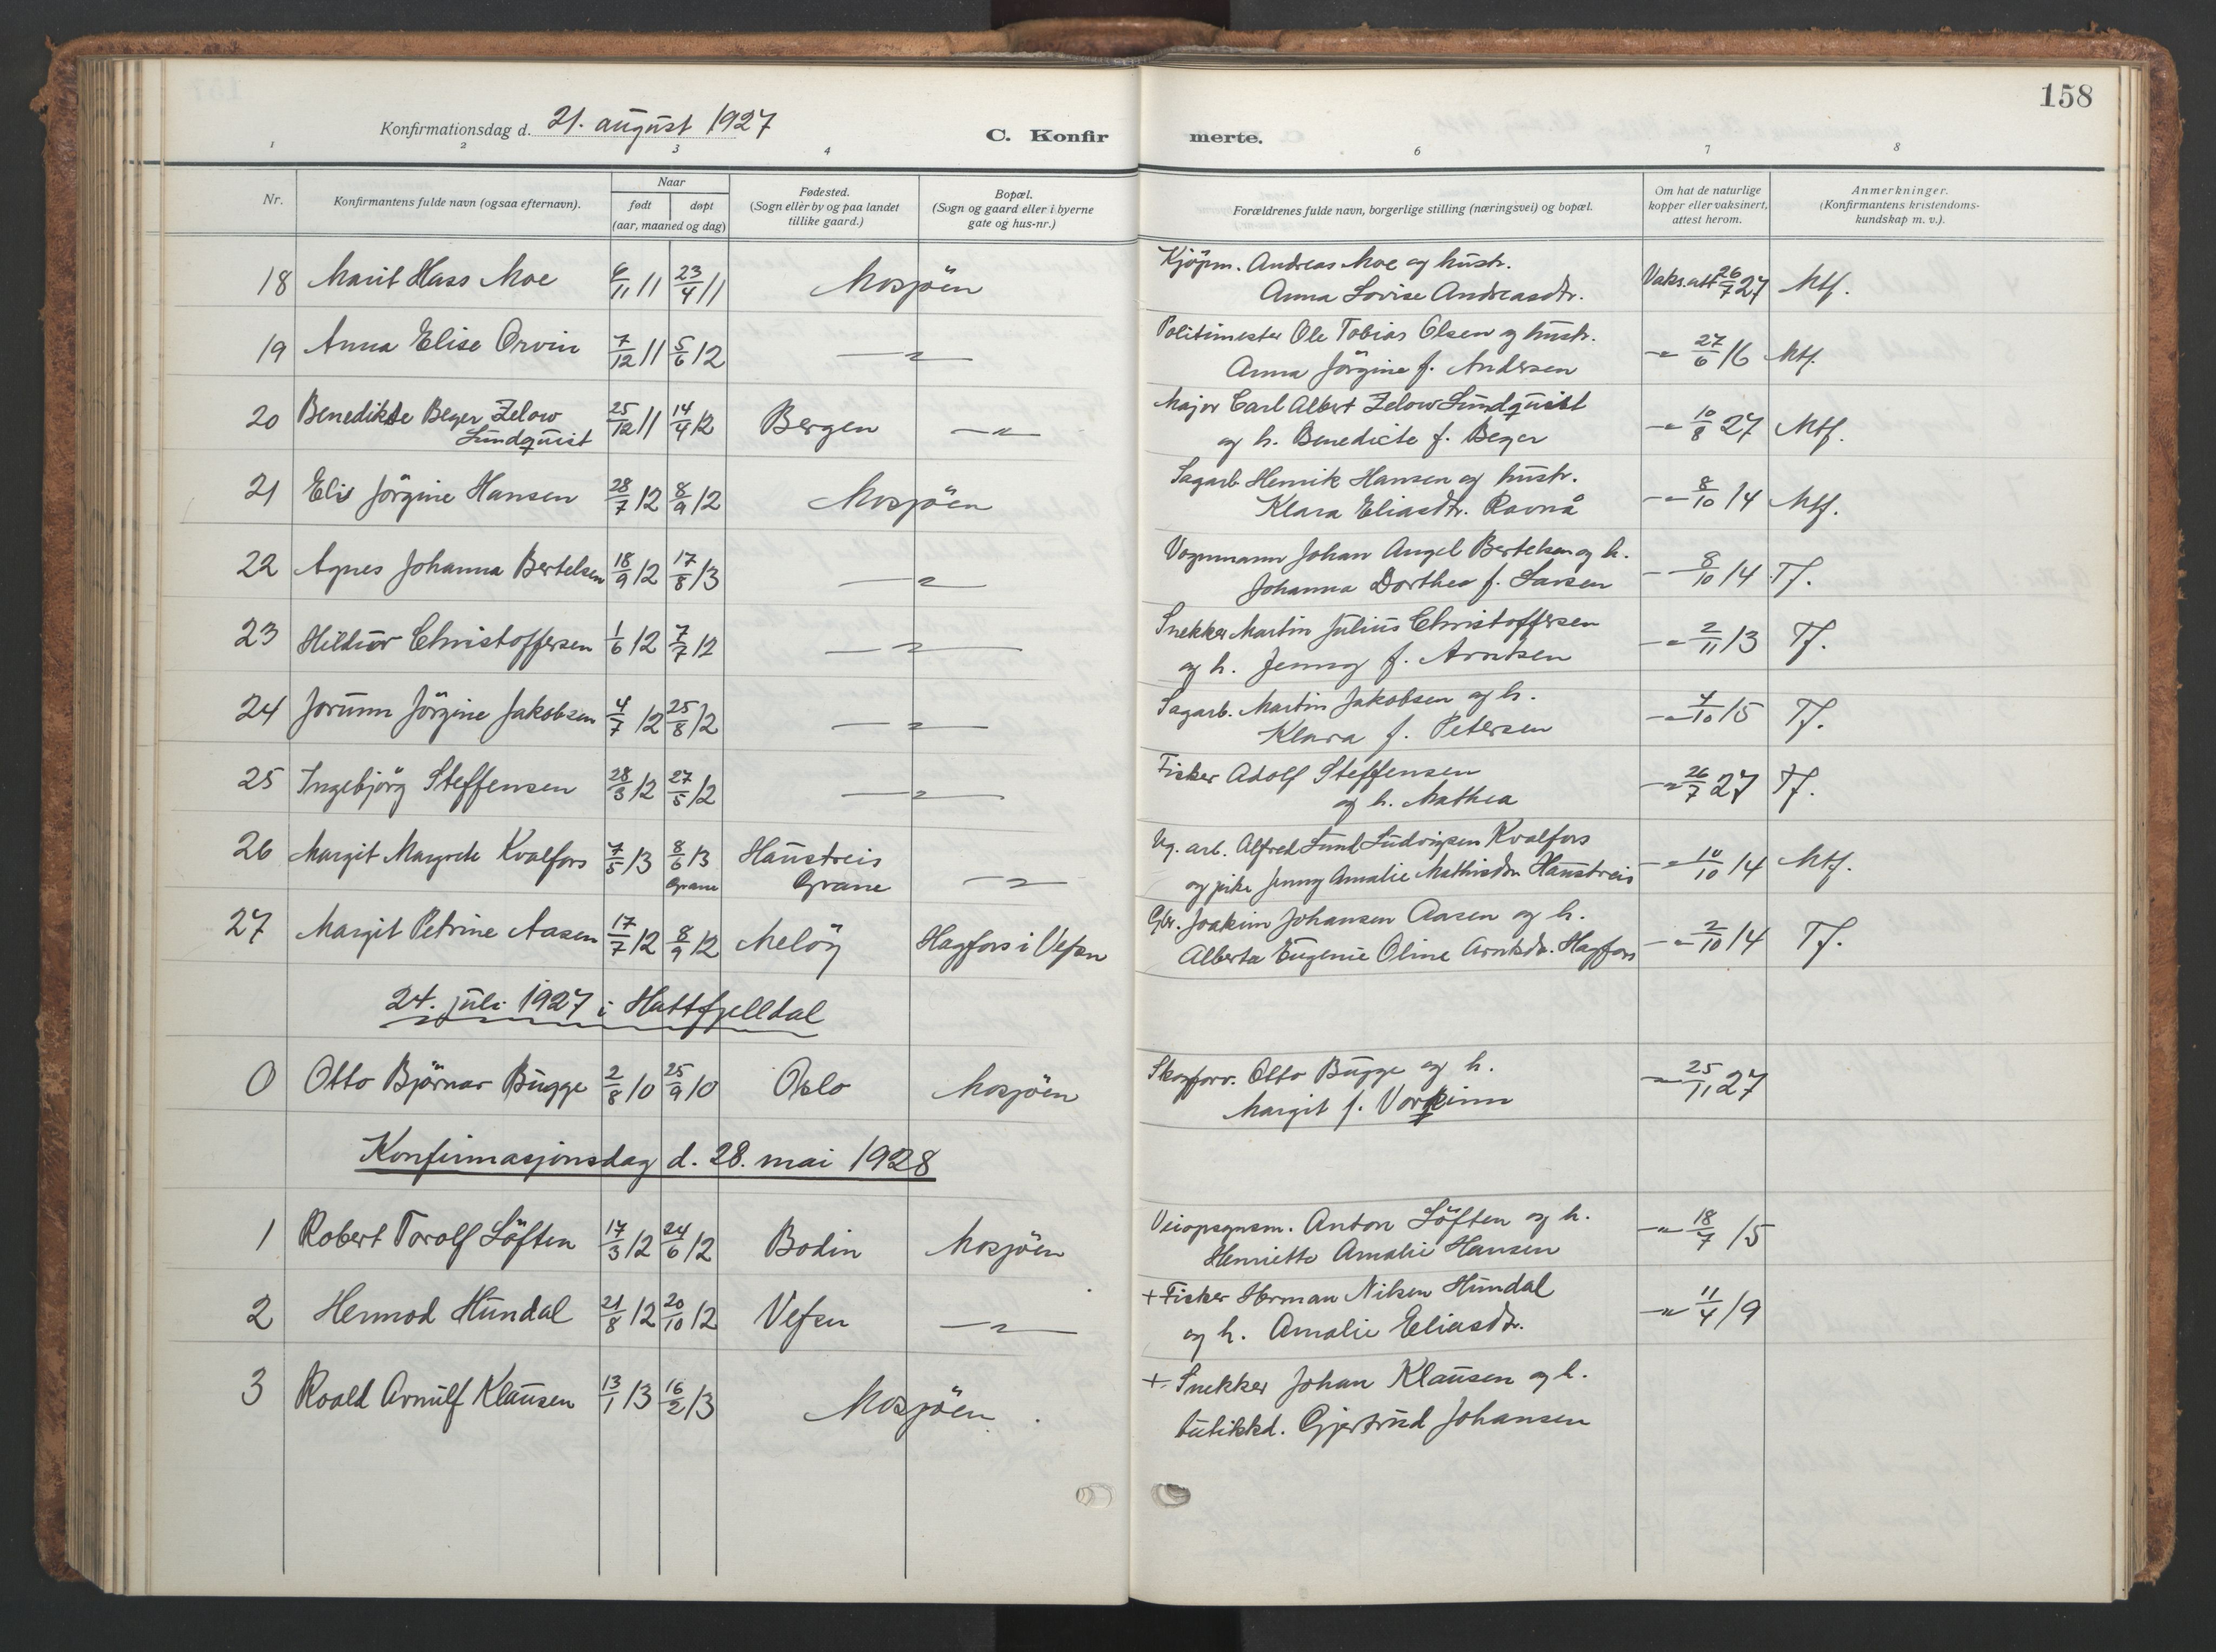 158
Konfirmationsdag d. 21. august 1927
C. Konfir merte.
1 2 3 4 6 7 8
Nr.
Konfirmantens fulde navn (ogsaa efternavn).
Naar
født døpt
(aar, maaned og dag)
Fødested.
(Sogn eller by og paa landet
tillike gaard.)
Bopæl.
(Sogn og gaard eller i byerne
gate og hus-nr.)
Forældrenes fulde navn, borgerlige stilling (næringsvei) og bopæl.
Om hat de naturlige
kopper eller vaksinert,
attest herom.
Anmerkninger.
(Konfirmantens kristendoms-
kundskap m. v.).
Kjöpm. Andreas Moe og hustr.
18 Marit Hass Moe 6/11 11 23/4 11 Mosjöen Anna Lovise Andreasdtr. Vaks.att 26/7 27 Mtf.
Politimester Ole Tobias Olsen og hustr.
19 Anna Elise Orvin 7/12 11 5/6 12 —"— Anna Jörgine f. Andersen —"— 27/6 16 Mtf.
20 Benedikte Beyer Zelow 25/12 11 14/4 12 Bergen —"— Major Carl Albert Zelow Lundquist —"— 10/8 27 Mtf.
Lundquist og h. Benedicte f. Beyer
21 Elis Jörgine Hansen 28/7 12 8/9 12 Mosjöen Sagarb. Henrik Hansen og hustr. —"— 8/10 14 Mtf.
Klara Eliasdtr. Ravnå
22 Agnes Johanna Bertelsen 18/9 12 17/8 13 —"— Vognmann Johan Angel Bertelsen og h. —"— 8/10 14 Tf.
Johanna Dorthea f. Larsen
23 Hildur Christoffersen 1/6 12 7/7 12 —"— Snekker Martin Julius Christoffersen —"— 2/11 13 Tf.
og h. Jenny f. Arntsen
24 Jorunn Jörgine Jakobsen 4/7 12 25/8 12 —"— Sagarb. Martin Jakobsen og h. —"— 4/10 15 Tf.
Klara f. Petersen
25 Ingebjörg Steffensen 28/3 12 27/5 12 —"— Fisker Adolf Steffensen —"— 26/7 27 Tf.
og h. Mathea
26 Margit Margrete Kvalfors 7/5 13 8/6 13 Haustreis Vg. arb. Alfred Ludvigsen Kvalfors —"— 10/10 14 Mtf.
Grane Grane —"— og pike Jenny Amalie Mathisdtr. Haustreis
27 Margit Petrine Aasen 17/7 12 8/9 12 Melöy Hagfors i Vefsn Gbr. Joakim Johansen Aasen og h. —"— 2/10 14 Tf.
Alberta Eugenie Oline Arntsdtr. Hagfors
24. juli 1927 i Hattfjelldal
0 Otto Björnar Bugge 2/8 10 25/9 10 Oslo Mosjöen Skogforv. Otto Bugge og h. —"— 25/11 27
Margit f. Vorkinn
Konfirmasjonsdag d. 28. mai 1928
1 Robert Torolf Löften 17/3 12 24/6 12 Bodin Mosjöen Veiopsynsm. Anton Löften og h. —"— 18/7 15
Henriette Amalie Hansen
2 Hermod Hundal 21/8 12 20/10 12 Vefsn —"— + Fisker Herman Nilsen Hundal —"— 11/4 19
og h. Amalie Eliasdtr.
3 Roald Arnulf Klausen 13/1 13 16/2 13 Mosjöen. + Snekker Johan Klausen og h.
butikkd. Gjertrud Johansen